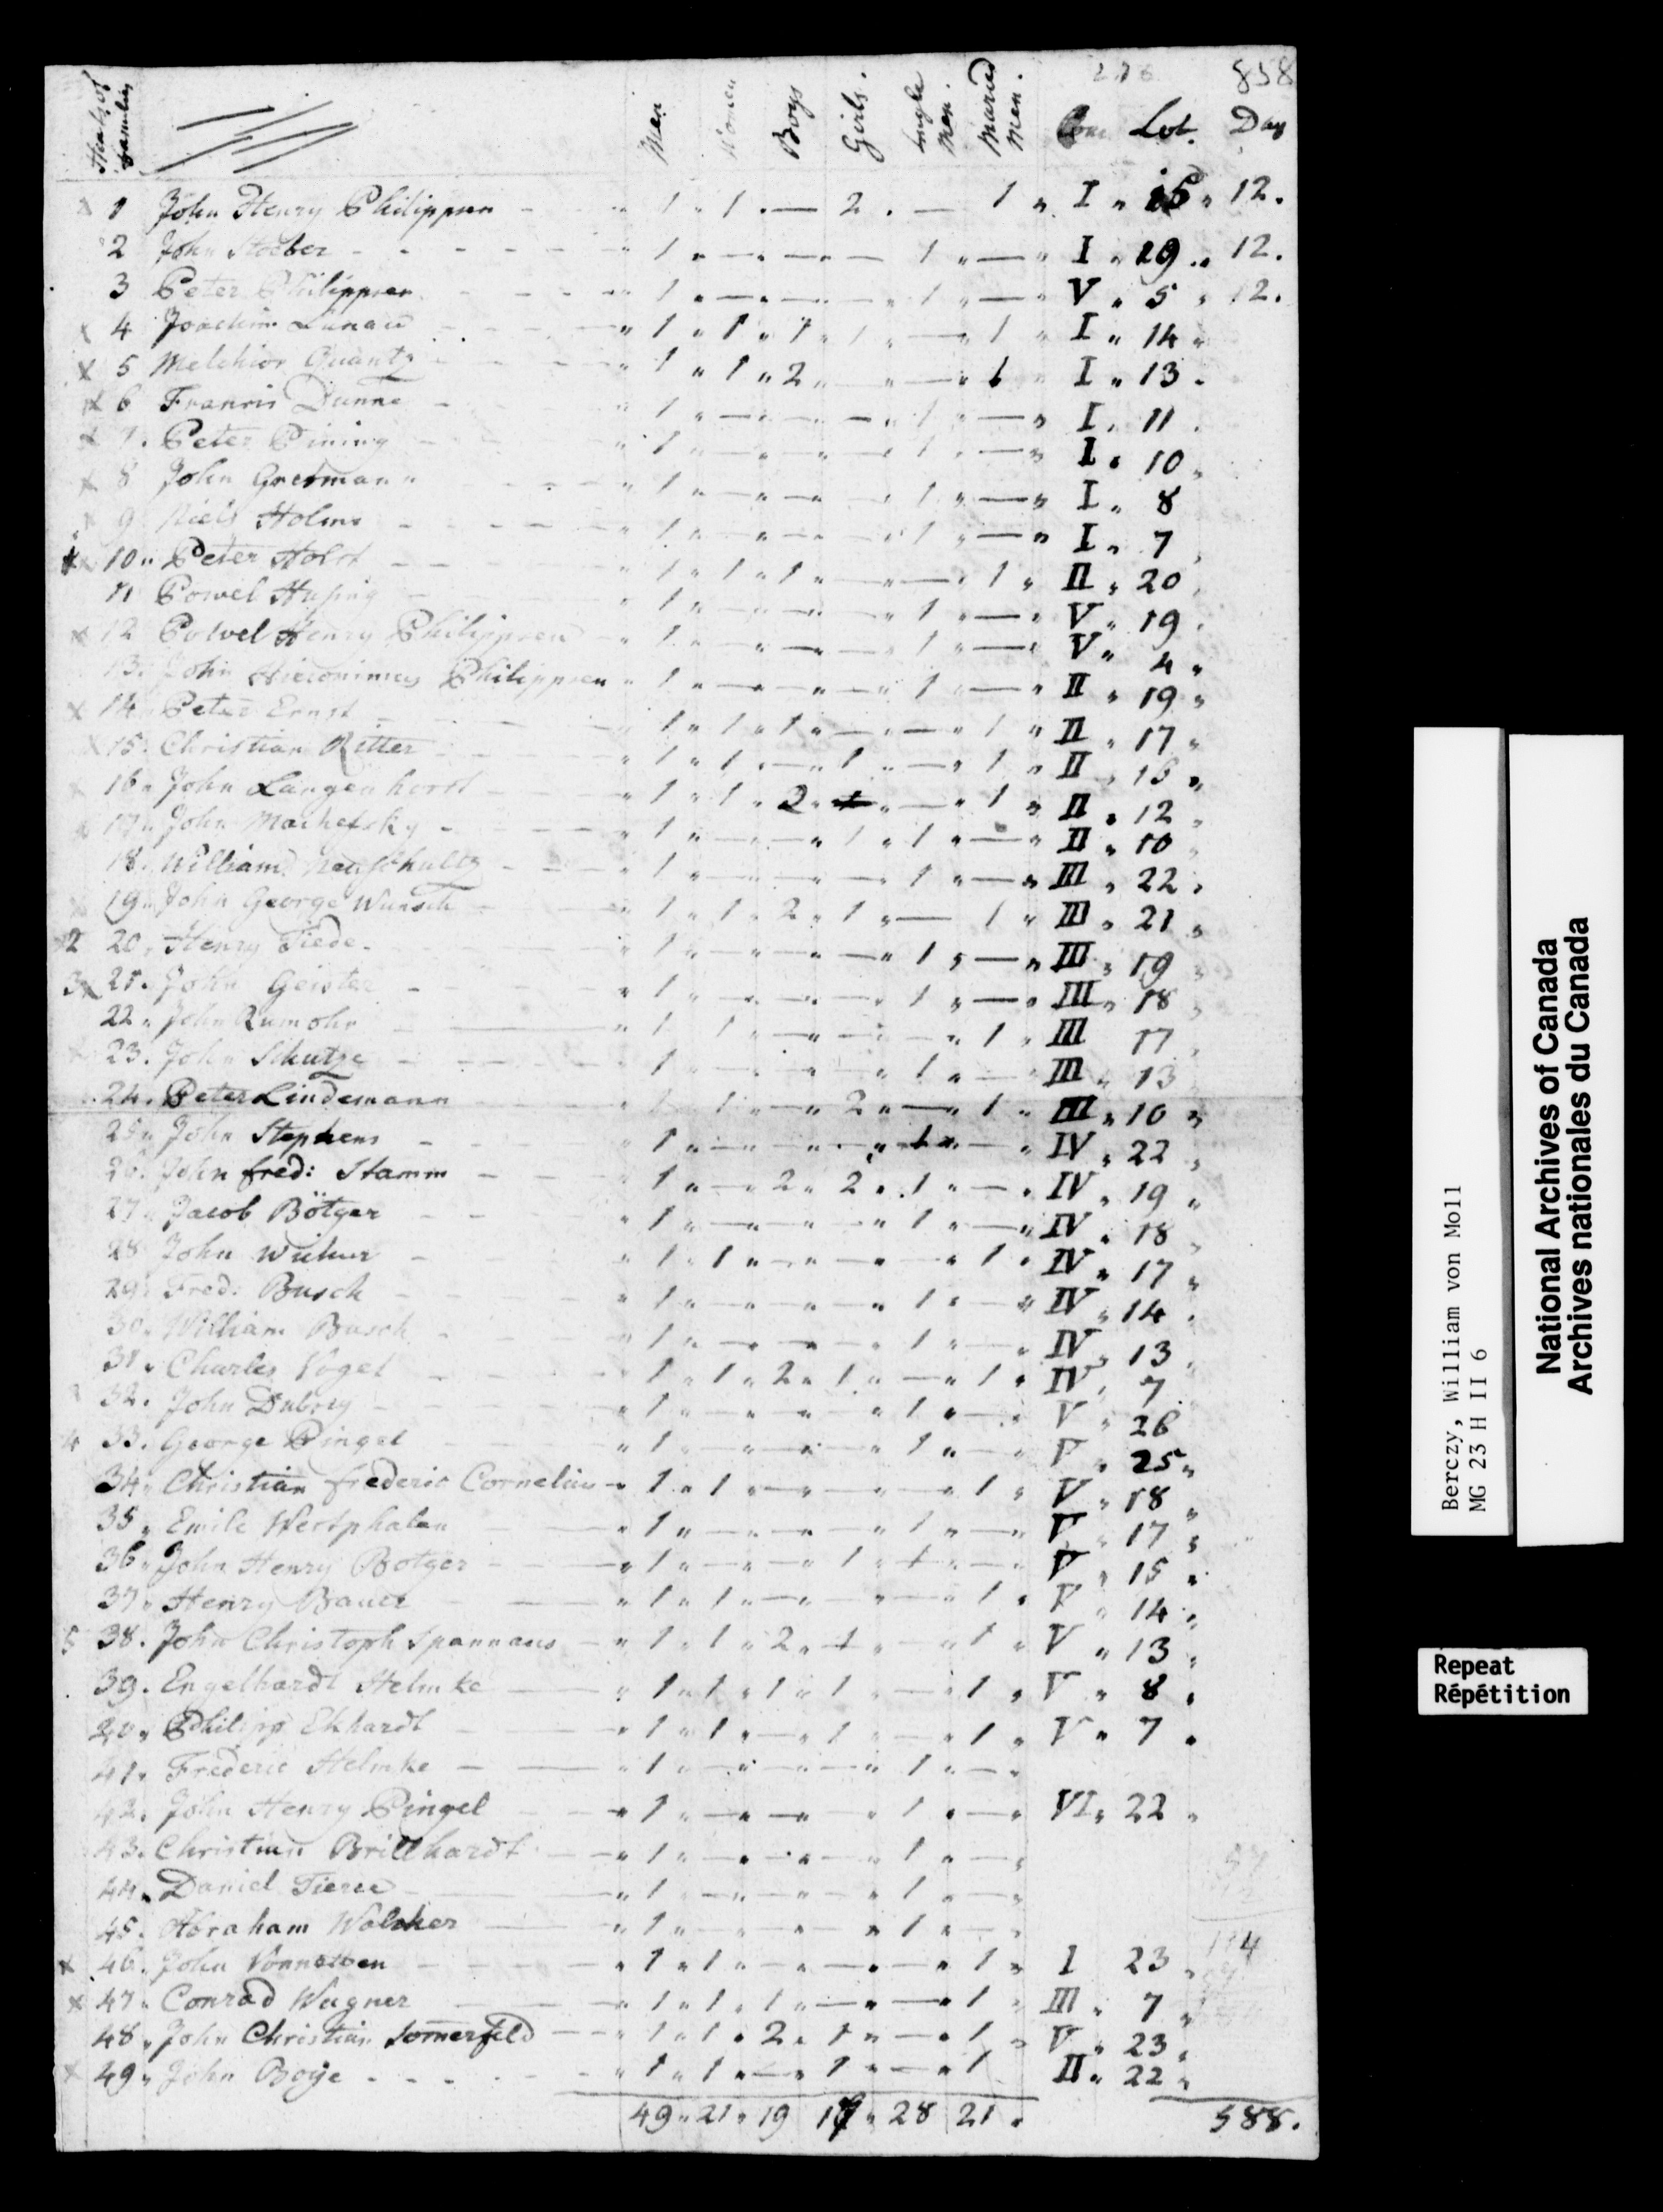 276 858
Heads of families Men Women Boys Girls. Single Men. Maried Men. Con Lot. Day
1 John Henry Philippsen - - " 1 " 1 . — 2 . — 1 " I " 15 " 12.
2 John Stoeber - - - - - " 1 " — " — " — 1 " — " I " 19 " 12.
3 Peter Philippsen - - - " 1 " — " — " 1 " — " V " 5 " 12.
x 4 Joachim Lunau - - - " 1 " 1 " 1 " 1 " — 1 " I " 14 "
x 5 Melchior Quantz - - - " 1 " 1 " 2 " " — " 1 " I " 13 "
x 6 Francis Dunne - " 1 " — " — " — " 1 " — " I " 11 "
x 7. Peter Pining - " 1 " — " — " 1 " — " I " 10 "
x 8 John Gretmann - - - " 1 " — " — " 1 " — " I " 8
x 9 Niels Holms - - - - " 1 " — " — " 1 " — " I " 7
x 10 " Peter Holst - - - " 1 " 1 " 1 " " — " 1 " II " 20
11 Powel - " 1 " — " — " 1 " — " V " 19 "
x 12 Powel Henry Philippsen - " 1 " — " — " 1 " — " V " 4 "
13. John Hieronimus Philippsen " 1 " — " — " — " 1 " — " II " 19 "
x 14 " Peter Ernst - - - " 1 " 1 " 1 " — " — " 1 " II " 17 "
x 15. Christian Ritter - - - " 1 " 1 " — " 1 " — " 1 " II " 15 "
x 16 " John Langenhorst - - " 1 " 1 " 2 " " — " 1 " II " 12 "
x 17 " John Machetsky - - - " 1 " — " — " 1 " 1 " — " II " 10 "
18. William Neuschultz - - - " 1 " — " — " 1 " — " III " 22 "
19 " John George Wunsch - " 1 " 1 " 2 " 1 " — 1 " III " 21 "
x2 20 " Henry Tiede - " 1 " — " — " — " 1 " — " III " 19 "
3x 21. John Geister - " 1 " — " — " 1 " — " III " 18 "
22 " John Rumohr - — " 1 1 " — " — " 1 " III 17 "
23. John Schutze - - - " 1 " — " — " 1 " — " III " 13 "
24. Peter Lindemann - " 1 " 1 " — " 2 " — " 1 " III " 10 "
25 " John Stephens - - " 1 " — " — " 1 " — " IV " 22 "
26. John fred: Stamm - - - " 1 " — " 2 " 2 " 1 " — " IV " 19 "
27 " Jacob Bötger - - - " 1 " — " — " — " 1 " — " IV " 18 "
28 John - - " 1 " 1 " — " — " — " 1 " IV " 17 "
29 " Fred: Busch - - " 1 " — " — " 1 " — " IV " 14 "
30 " William Busch - - " 1 " — " — " 1 " — " IV " 13 "
31 " Charles Vogel - - - " 1 " 1 " 2 " 1 " — " 1 " IV " 7 "
32. John - - - " 1 " — " — " 1 " — " V " 26
4 33. George Pingel - - " 1 " — " — " 1 " — " V " 25 "
34 " Christian frederic Cornelius - " 1 " 1 " — " — " 1 " V " 18 "
35 " Emile Westphalen — " 1 " — " — " — " 1 " — " V " 17 "
36 " John Henry Botger - — " 1 " — " — " 1 " 1 " — " V " 15 "
37 " Henry Bauer - — " 1 " 1 " — " — " 1 " V " 14 "
5 38. John Christoph Spannaus - " 1 " 1 " 2 " 1 " — " 1 " V " 13 "
39. Engelhardt Helmke — " 1 " 1 " 1 " 1 " — " 1 " V " 8 "
40 " Philipp Ekhardt - — " 1 " 1 " — " 1 " — " 1 " V " 7 "
41 " Frederic Helmke - — " 1 " — " — " — " 1 " — "
42. John Henry Pingel - " 1 " — " — " 1 " — " VI " 22 "
43. Christian Brillhardt - " 1 " — " — " 1 " — "
44 " Daniel Tierce — " 1 " — " — " 1 " — "
45. Abraham Walcher — " 1 " — " — " 1 " — "
x 46. John Vonnotten - - - " 1 " 1 " — " — " — " 1 " I 23 "
x 47 " Conrad Wagner — " 1 " 1 " 1 " — " — " 1 " III " 7 "
48 " John Christian Somerfeld - " 1 " 1 " 2 " 1 " — " 1 " V " 23 "
x 49 " John Boye - - - - " 1 " 1 " — " 1 " — " 1 II " 22 "
49 " 21 " 19 " 28 21 " 588.
Berczy, William von Moll
MG 23 H II 6
National Archives of Canada
Archives nationales du Canada
Repeat
Répétition